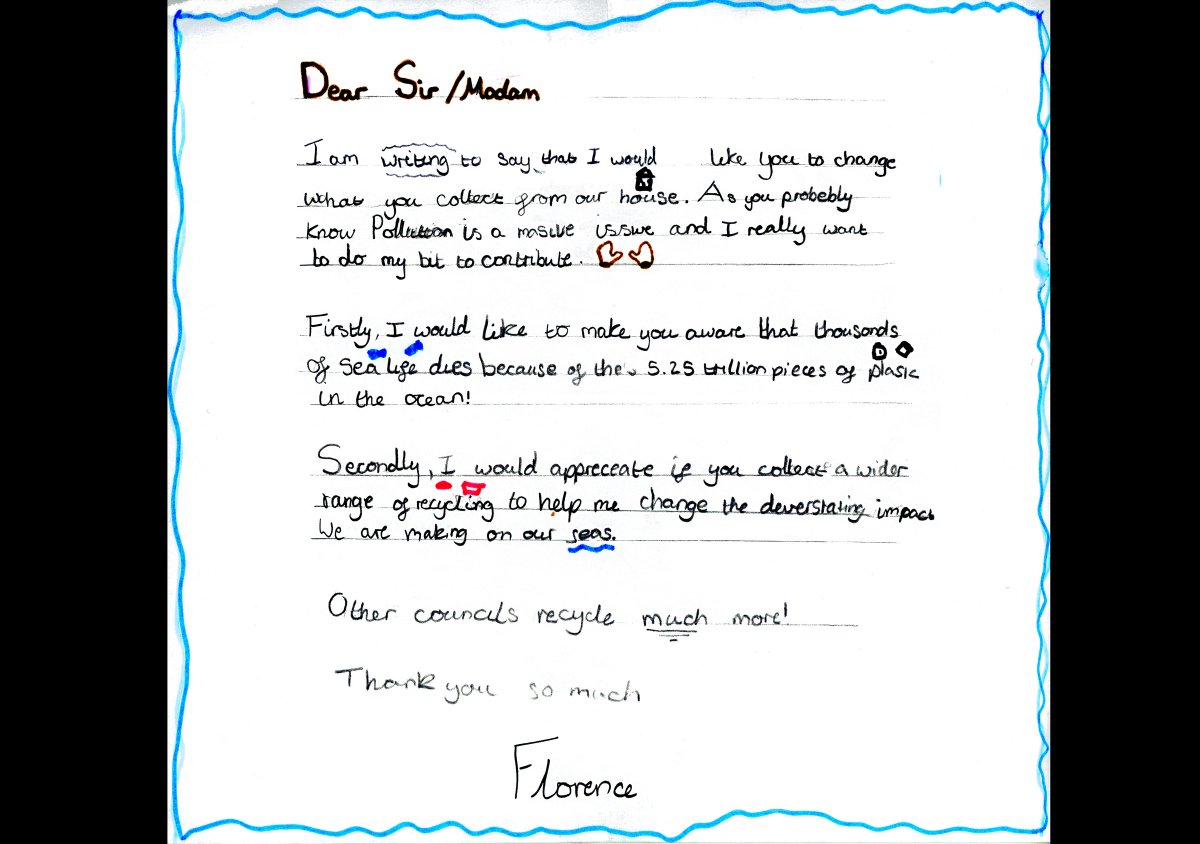 Dear Sir/Madam
I am writing to say that I would like you to change
what you collect from our house. As you probebly
know Pollution is a masive isswe and I really want
to do my bit to contribute.
Firstly, I would like to make you aware that thousands
of sea life dies because of the 5.25 trillion pieces of plasic
in the ocean!
Secondly, I would appreceate if you collect a wider
range of recycling to help me change the deverstating impact
We are making on our seas.
Other councils recycle much more!
Thank you so much
Florence